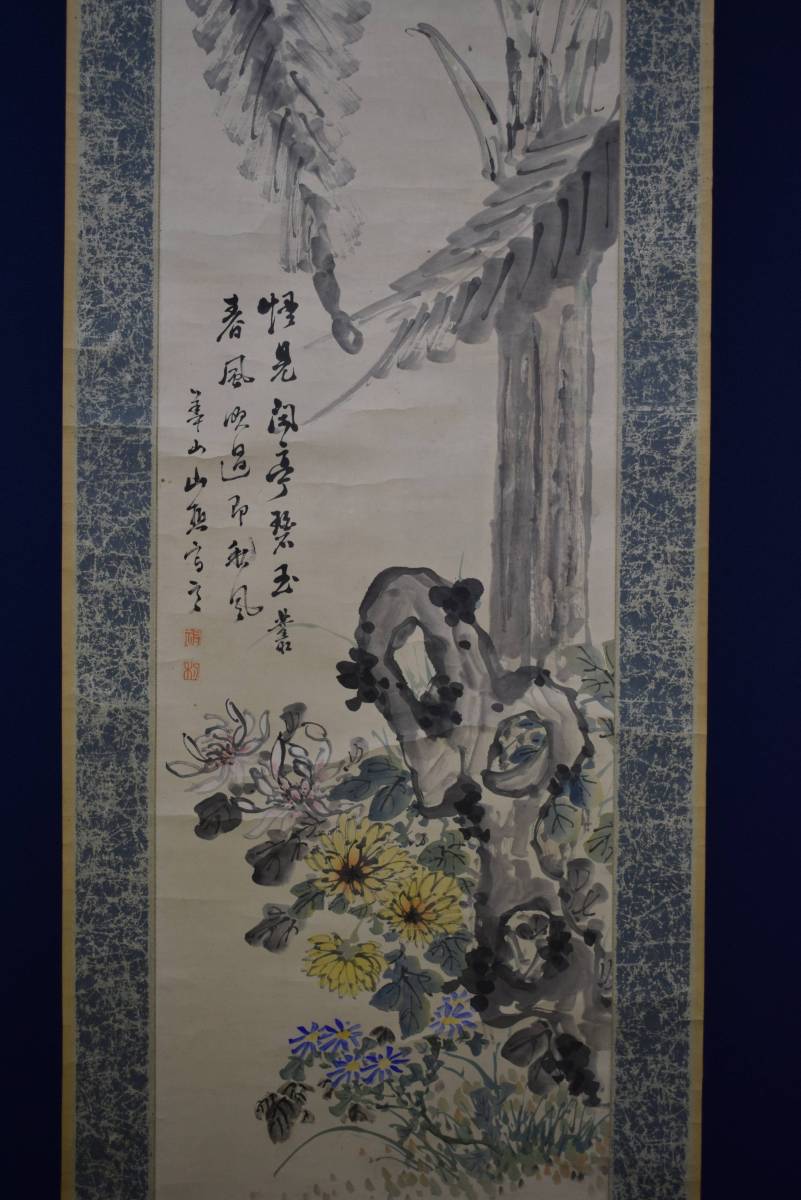 怪見閑亭碧玉叢
春風吹過即秋風
華山山